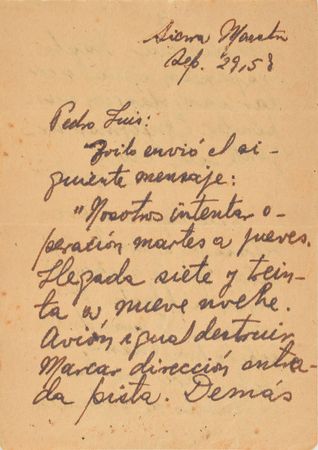 Sierra Maestra
Sep. 29, 58
Pedro Luis:
"Zoilo envió el si-
guiente mensaje:
"Nosotros intentar o-
peración martes a jueves.
Llegada siete y trein-
ta a nueve noche.
Avión igual destruir
Marcar dirección entra-
da pista. Demás